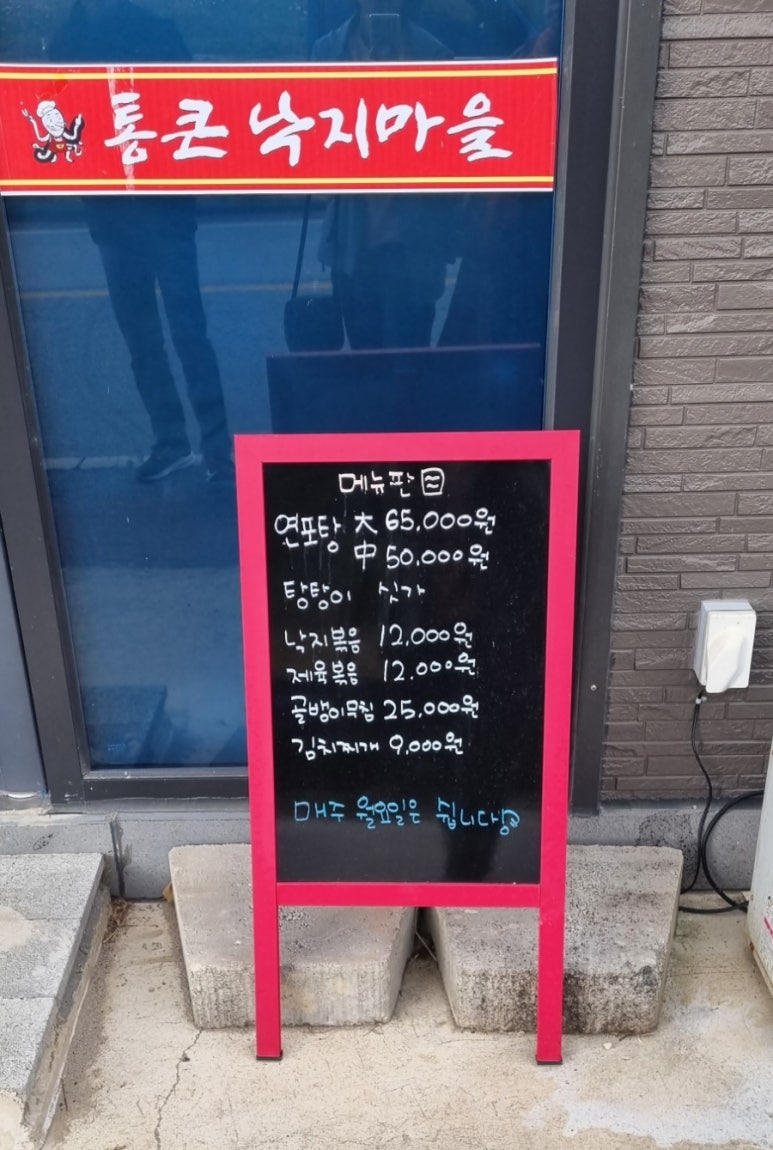 통큰 낙지마을
메뉴판
연포탕 大 65,000원
中 50,000원
탕탕이 싯가
낙지볶음 12,000원
제육볶음 12.000원
골뱅이무침 25,000원
김치찌개 9,000원
매주 월요일은 쉽니다